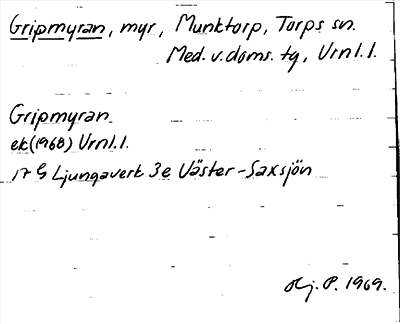 Gripmyran, myr, Munktorp, Torps sn.
Med. v. doms. tg, Urnl.l.
Gripmyran
ek(1968) Urnl.l.
17 G Ljungaverk 3e Väster-Saxsjön
P. 1969.